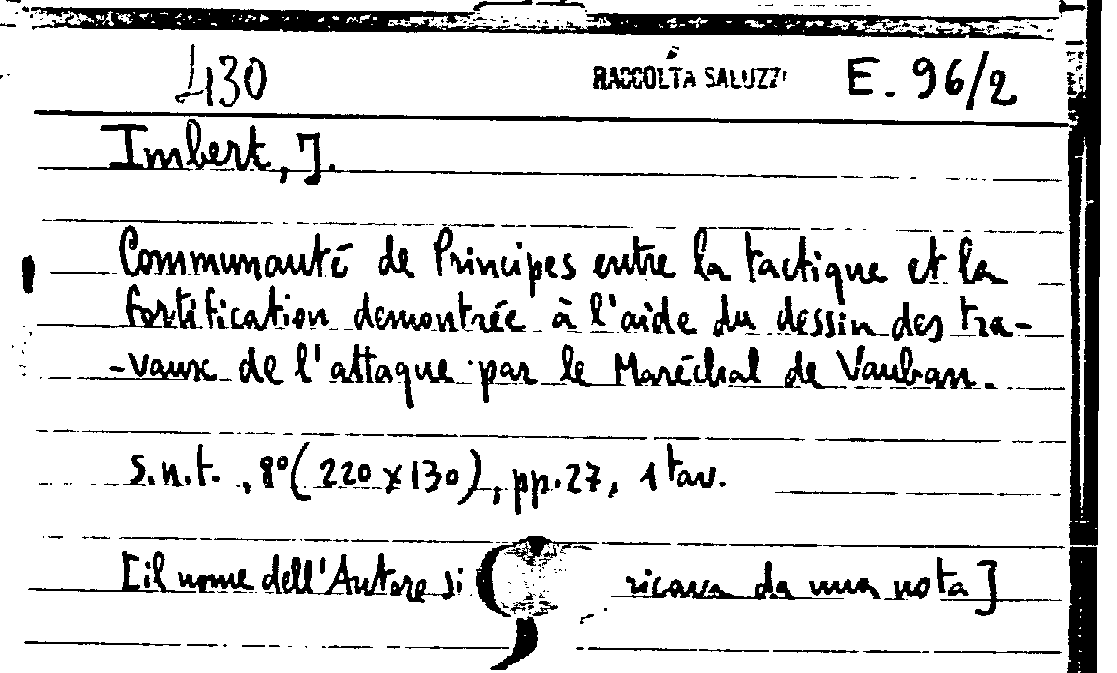 430 RACCOLTA SALUZZI E. 96/2
Imbert, J.
Communauté de Principes entre la tactique et la
fortification demontrée à l'aide du dessin des tra-
-vaux de l'attaque par le Maréchal de Vauban.
s.n.t., 8° (220x130), pp.27, 1 tav.
[il nome dell'Autore si ricava da una nota]